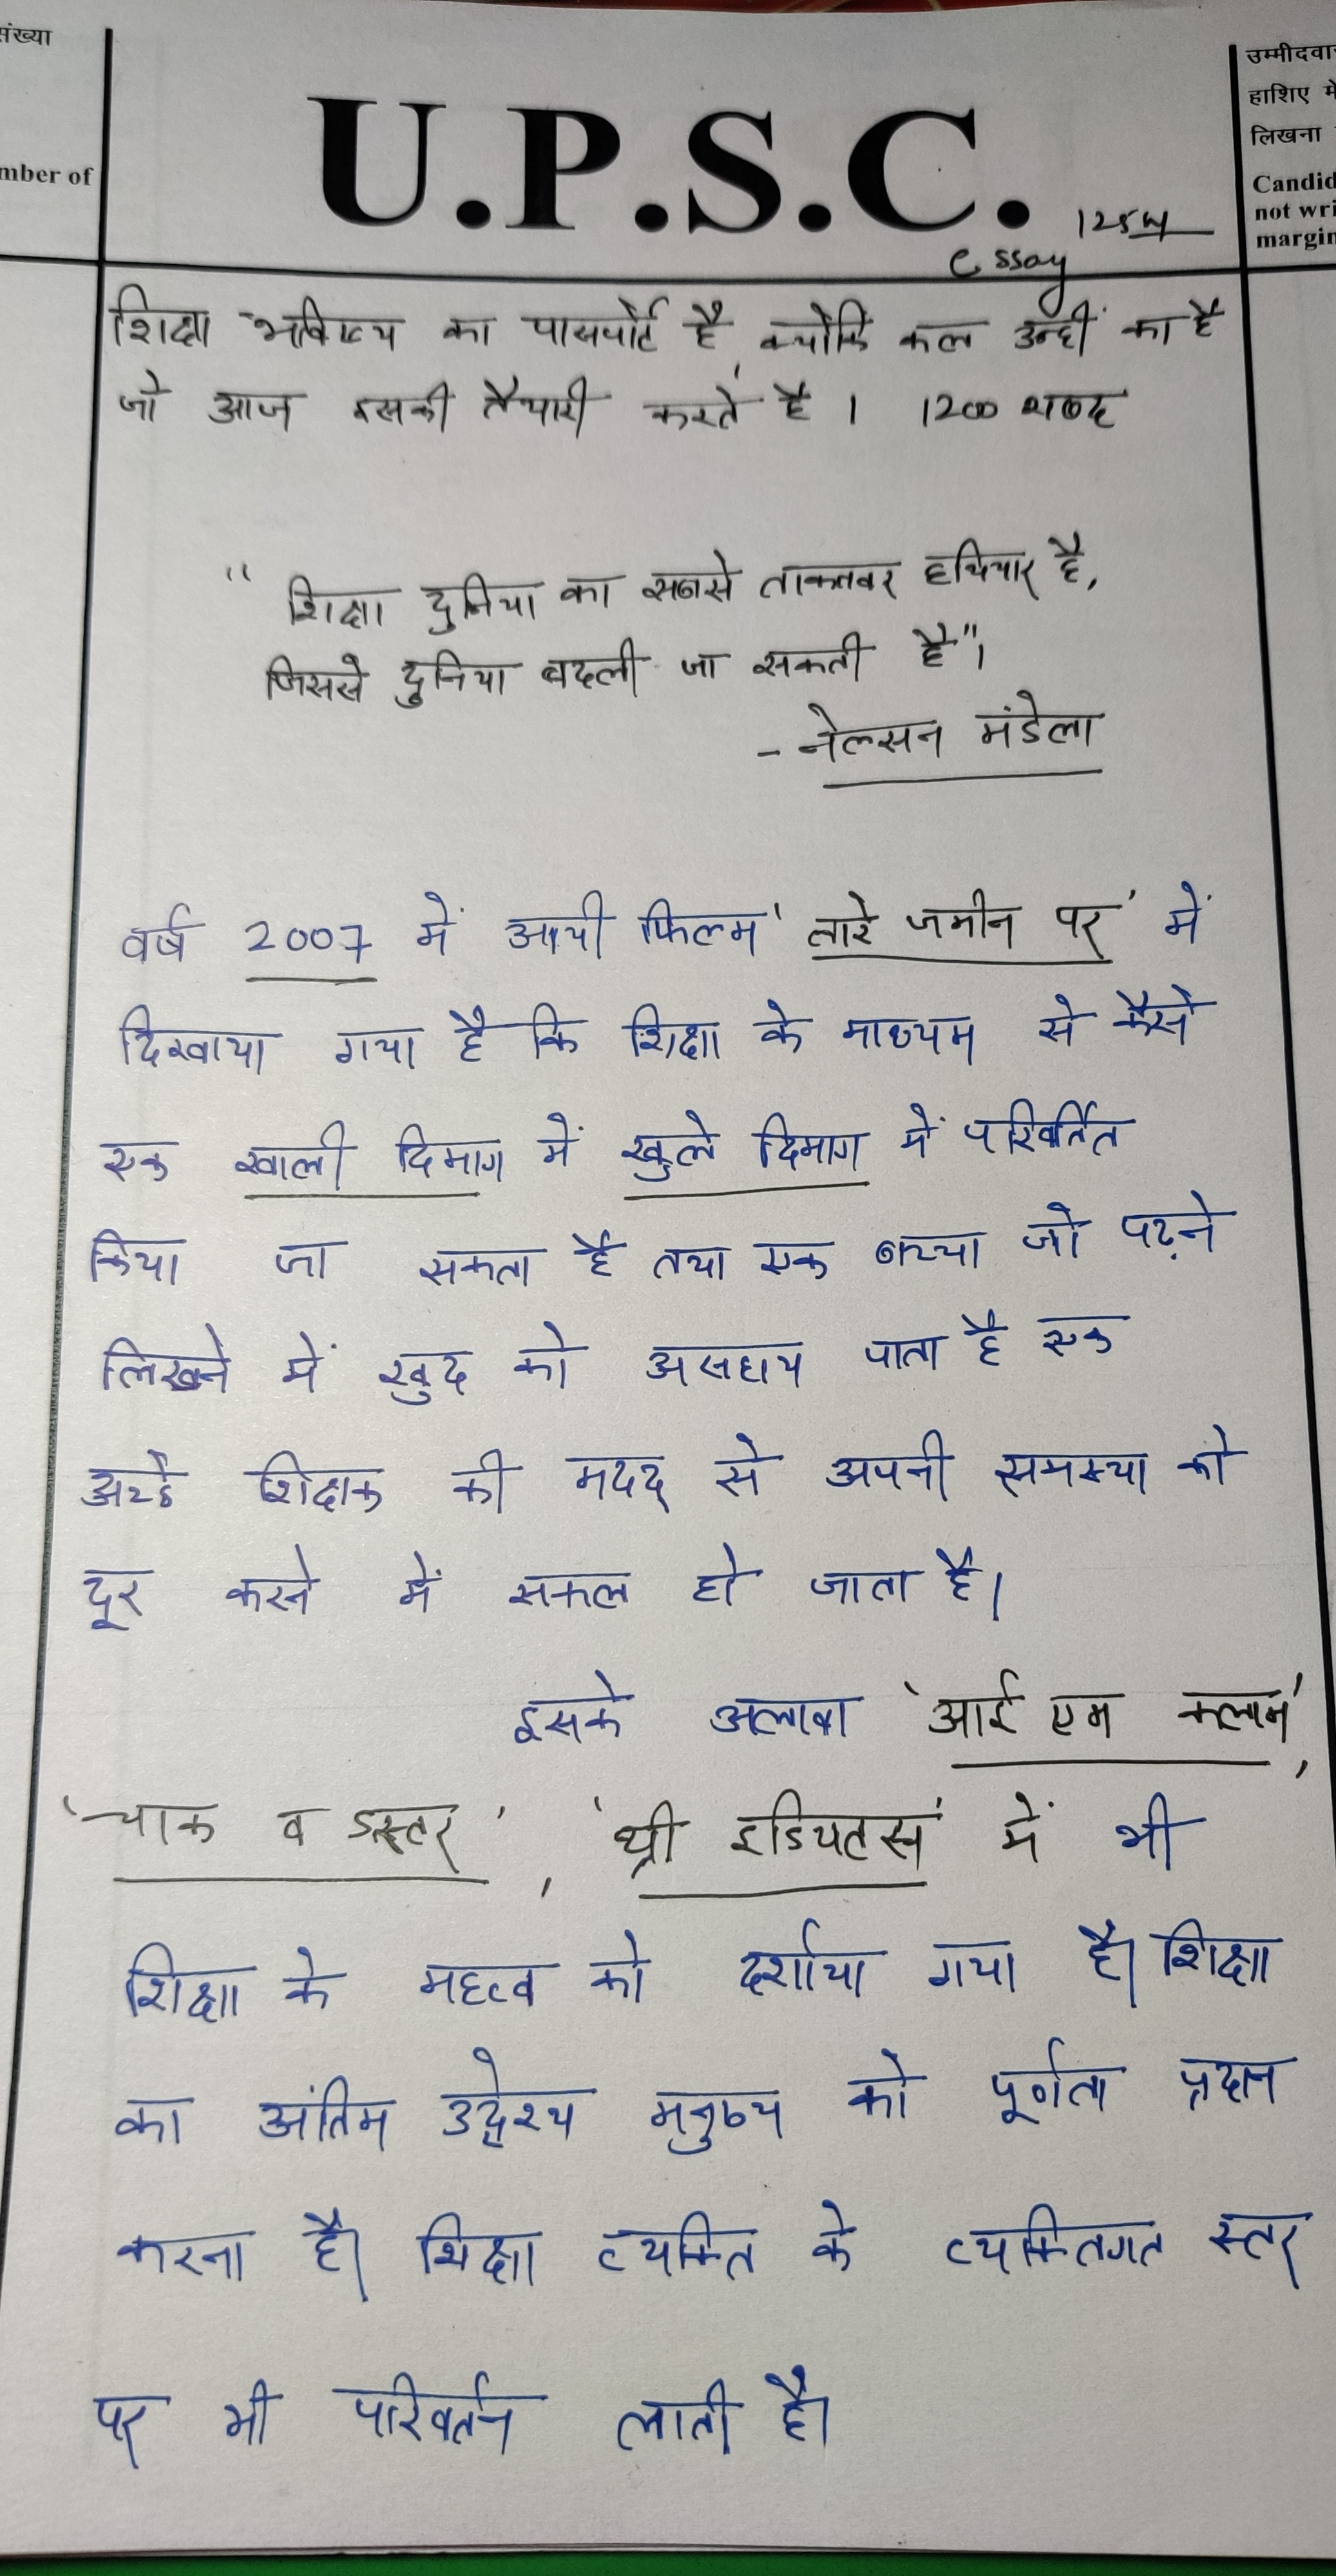 संख्या
mber of
U.P.S.C.
उम्मीदवार
हाशिए में
लिखना
Candid
not wri
margin
Essay
शिक्षा भविष्य का पासपोर्ट है, क्योंकि कल उन्हीं का है
जो आज इसकी तैयारी करते है। 1200 शब्द
“शिक्षा दुनिया का सबसे ताकतवर हथियार है,
जिससे दुनिया बदली जा सकती है”।
- नेल्सन मंडेला
वर्ष 2007 में आयी फिल्म 'तारे जमीन पर' में
दिखाया गया है कि शिक्षा के माध्यम से कैसे
एक खाली दिमाग में खुले दिमाग में परिवर्तित
किया जा सकता है तथा एक बच्चा जो पढ़ने
लिखने में खुद को असहाय पाता है एक
अच्छे शिक्षक की मदद से अपनी समस्या को
दूर करने में सफल हो जाता है।
इसके अलावा 'आई एम कलाम',
'चाक व डस्टर', 'थ्री इडियटस' में भी
शिक्षा के महत्व को दर्शाया गया है। शिक्षा
का अंतिम उद्देश्य मनुष्य को पूर्णता प्रदान
करना है। शिक्षा व्यक्ति के व्यक्तिगत स्तर
पर भी परिवर्तन लाती है।